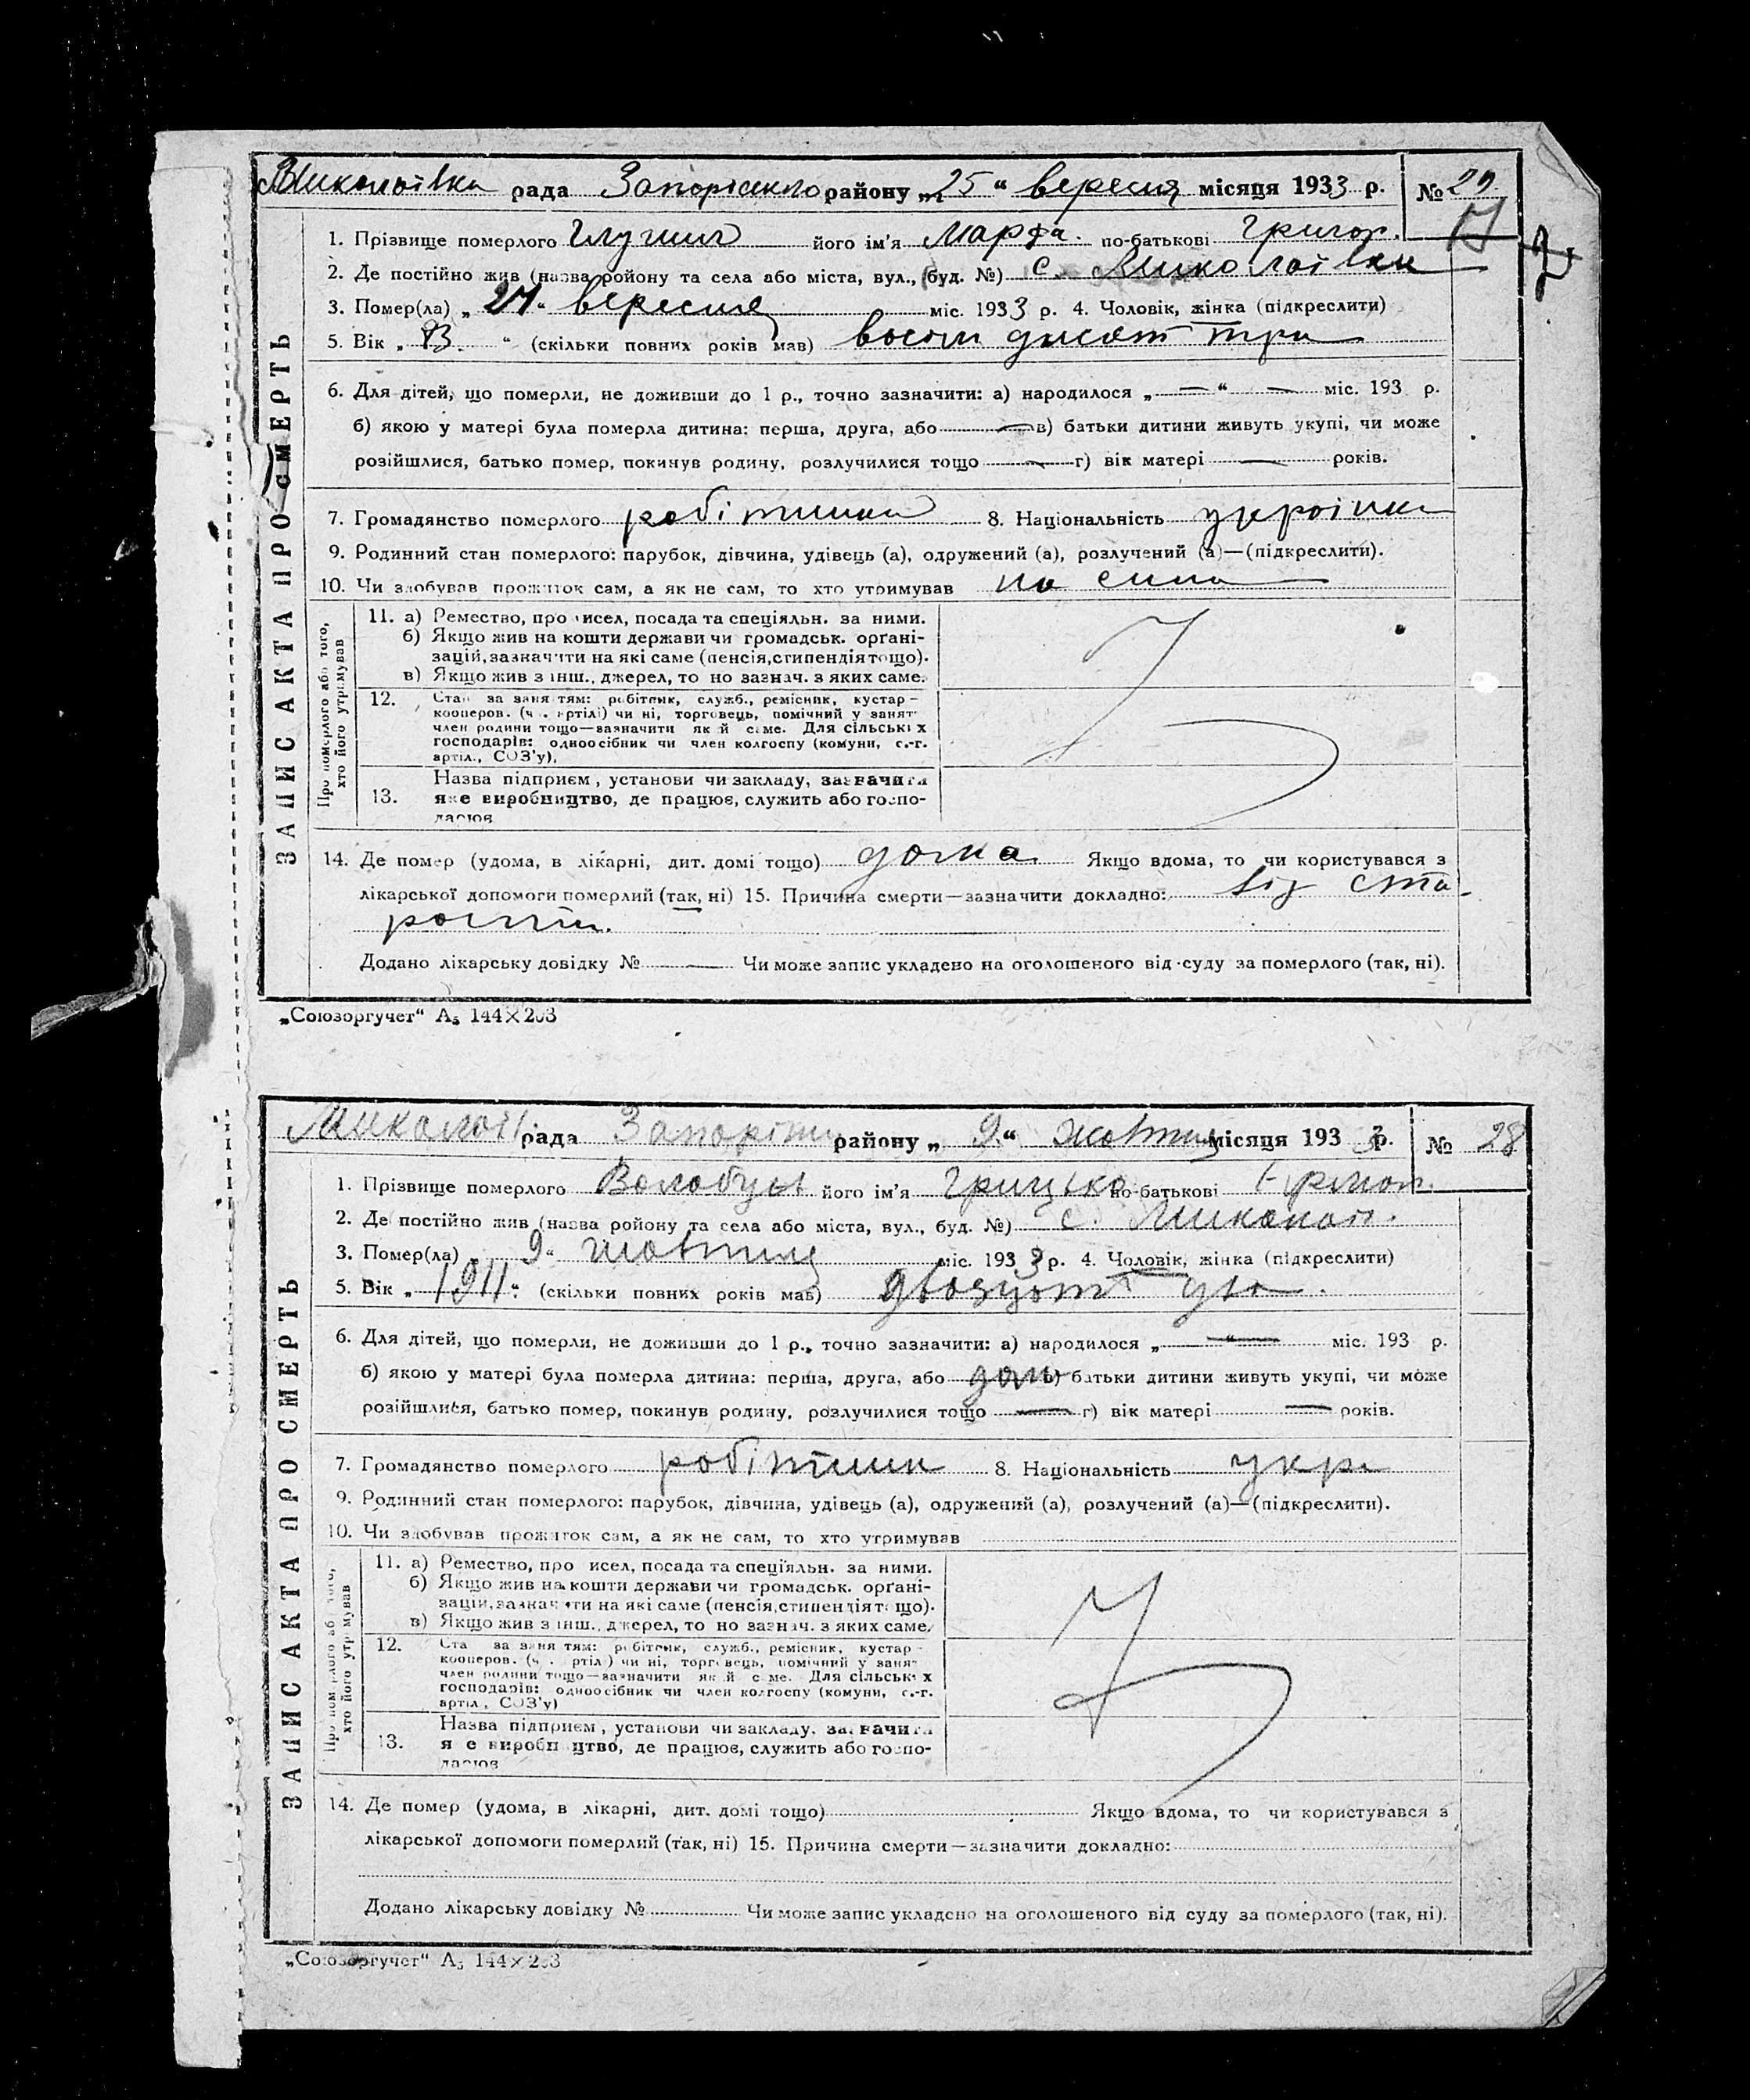 Миколаївка рада Запорізького району „25“ вересня місяця 1933 р. №
ЗАПИС АКТА ПРО СМЕРТЬ
1. Прізвище померлого його ім'я Марфа. по-батькові Григор.
2. Де постійно жив (назва ройону та села або міста, вул., буд. №) с. Миколаївка
3. Помер(ла) „ “ вересня міс. 1933 р. 4. Чоловік, жінка (підкреслити)
5. Вік „ “ (скільки повних років мав) восім десят три
6. Для дітей, що померли, не доживши до 1 р., точно зазначити: а) народилося „—“ — міс. 193 р.
б) якою у матері була померла дитина: перша, друга, або — в) батьки дитини живуть укупі, чи може
розійшлися, батько помер, покинув родину, розлучилися тощо — г) вік матері — років.
7. Громадянство померлого 8. Національність українка
9. Родинний стан померлого: парубок, дівчина, удівець (а), одружений (а), розлучений (а)—(підкреслити).
10. Чи здобував прожиток сам, а як не сам, то хто утримував
Про померлого або того, хто його утримував
11. а) Ремество, промисел, посада та спеціяльн. за ними.
б) Якщо жив на кошти держави чи громадськ. орґані-
зацій, зазначити на які саме (пенсія, стипендія тощо).
в) Якщо жив з інш., джерел, то но зазнач. з яких саме.
12. Стан за заняттям: робітник, служб., ремісник, кустар-
кооперов. (ч. артілі) чи ні, торговець, помічний у занят.
член родини тощо—зазначити який саме. Для сільських
господарів: одноосібник чи член колгоспу (комуни, с.-г.
артіл., СОЗ'у).
13. Назва підприєм, установи чи закладу, зазначити
яке виробництво, де працює, служить або госпо-
дарює
14. Де помер (удома, в лікарні, дит. домі тощо) дома Якщо вдома, то чи користувався з
лікарської допомоги померлий (так, ні) 15. Причина смерти—зазначити докладно: від ста-
рости.
Додано лікарську довідку № — Чи може запис укладено на оголошеного від суду за померлого (так, ні).
„Союзоргучет“ А₅ 144×203
рада району „9“ жовтня місяця 1933 р. № 28
ЗАПИС АКТА ПРО СМЕРТЬ
1. Прізвище померлого його ім'я Грицько по-батькові
2. Де постійно жив (назва ройону та села або міста, вул., буд. №) с.
3. Помер(ла) „ 9“ жовтня міс. 1933 р. 4. Чоловік, жінка (підкреслити)
5. Вік „1911“ (скільки повних років мав) двадцять два.
6. Для дітей, що померли, не доживши до 1 р., точно зазначити: а) народилося „—“— міс. 193 р.
б) якою у матері була померла дитина: перша, друга, або в) батьки дитини живуть укупі, чи може
розійшлися, батько помер, покинув родину, розлучилися тощо — г) вік матері — років.
7. Громадянство померлого робітник 8. Національність укр.
9. Родинний стан померлого: парубок, дівчина, удівець (а), одружений (а), розлучений (а)—(підкреслити).
10. Чи здобував прожиток сам, а як не сам, то хто утримував
Про померлого або того, хто його утримував
11. а) Ремество, промисел, посада та спеціяльн. за ними.
б) Якщо жив на кошти держави чи громадськ. орґані-
зацій, зазначити на які саме (пенсія, стипендія тощо).
в) Якщо жив з інш., джерел, то но зазнач. з яких саме.
12. Стан за заняттям: робітник, служб., ремісник, кустар-
кооперов. (ч. артілі) чи ні, торговець, помічний у занят.
член родини тощо—зазначити який саме. Для сільських
господарів: одноосібник чи член колгоспу (комуни, с.-г.
артіл., СОЗ'у)
13. Назва підприєм, установи чи закладу, зазначити
яке виробництво, де працює, служить або госпо-
дарює
14. Де помер (удома, в лікарні, дит. домі тощо) Якщо вдома, то чи користувався з
лікарської допомоги померлий (так, ні) 15. Причина смерти—зазначити докладно:
Додано лікарську довідку № Чи може запис укладено на оголошеного від суду за померлого (так, ні).
„Союзоргучет“ А₅ 144×203